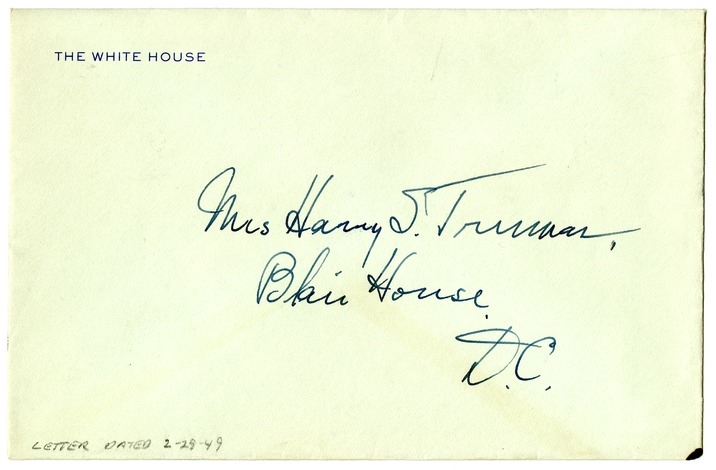 THE WHITE HOUSE
Mrs Harry S. Truman,
Blair House
D.C.
LETTER DATED 2-28-49